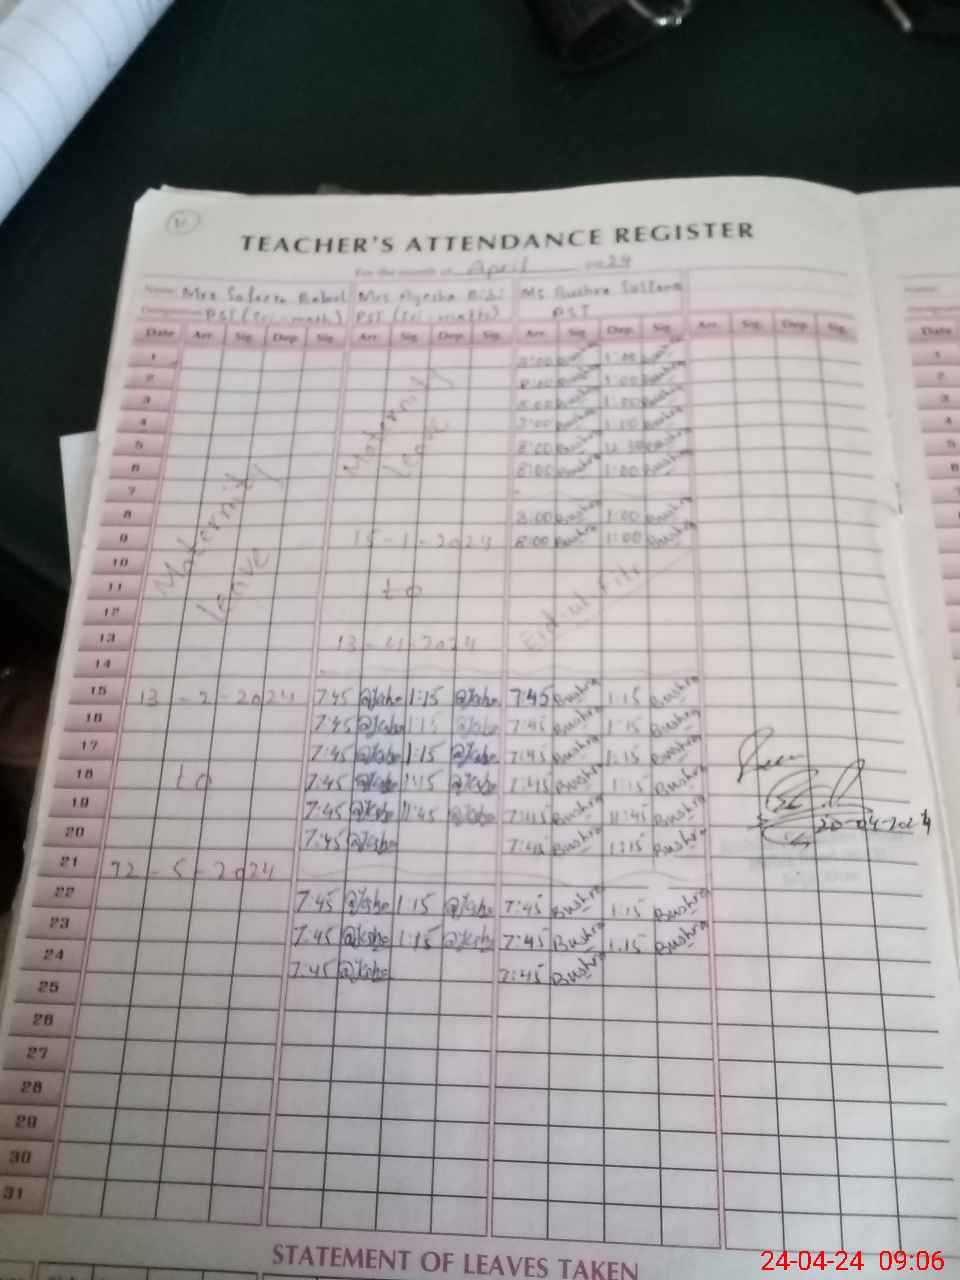 TEACHER'S ATTENDANCE REGISTER
For the month of April 2024
Name Mrs Mrs Ayesha Bibi Ms Bushra Sultana
PST (Sci-math) PST (Sci-math) PST
Date Arr. Sig. Dep. Sig. Arr. Sig. Dep. Sig. Arr. Sig. Dep. Sig. Arr. Sig. Dep. Sig. Date
1 8:00 Bushra 1:00 Bushra 1
2 8:00 Bushra 1:00 Bushra 2
3 8:00 Bushra 1:00 Bushra 3
4 8:00 Bushra 1:00 Bushra 4
5 8:00 Bushra 12:30 Bushra 5
6 8:00 Bushra 1:00 Bushra 6
7 7
Maternity leave
Maternity leave
8 8:00 Bushra 1:00 Bushra 8
9 15-1-2024 8:00 Bushra 1:00 Bushra 9
10 10
11 to 11
12 Eid-ul-Fitr 12
13 13-4-2024 13
14 14
15 13-2-2024 7:45 Ayesha 1:15 Ayesha 7:45 Bushra 1:15 Bushra 15
16 7:45 Ayesha 1:15 Ayesha 7:45 Bushra 1:15 Bushra 16
17 7:45 Ayesha 1:15 Ayesha 7:45 Bushra 1:15 Bushra 17
18 to 7:45 Ayesha 1:15 Ayesha 7:45 Bushra 1:15 Bushra 18
19 7:45 Ayesha 11:45 Ayesha 7:45 Bushra 11:45 Bushra 20-04-2024 19
20 7:45 Ayesha 7:45 Bushra 1:15 Bushra 20
21 12-5-2024 21
22 7:45 Ayesha 1:15 Ayesha 7:45 Bushra 1:15 Bushra 22
23 7:45 Ayesha 1:15 Ayesha 7:45 Bushra 1:15 Bushra 23
24 7:45 Ayesha 7:45 Bushra 24
25 25
26 26
27 27
28 28
29 29
30 30
31 31
STATEMENT OF LEAVES TAKEN
24-04-24 09:06